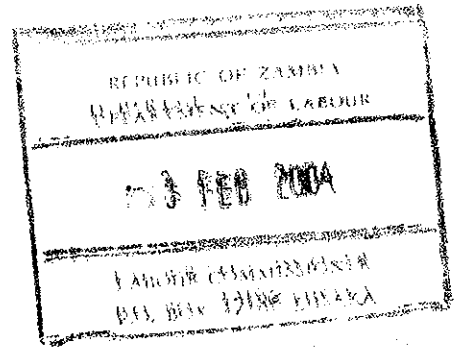 REPUBLIC OF ZAMBIA
DEPARTMENT OF LABOUR
3 FEB 2004
LABOUR COMMISSIONER
P.O. BOX LUSAKA